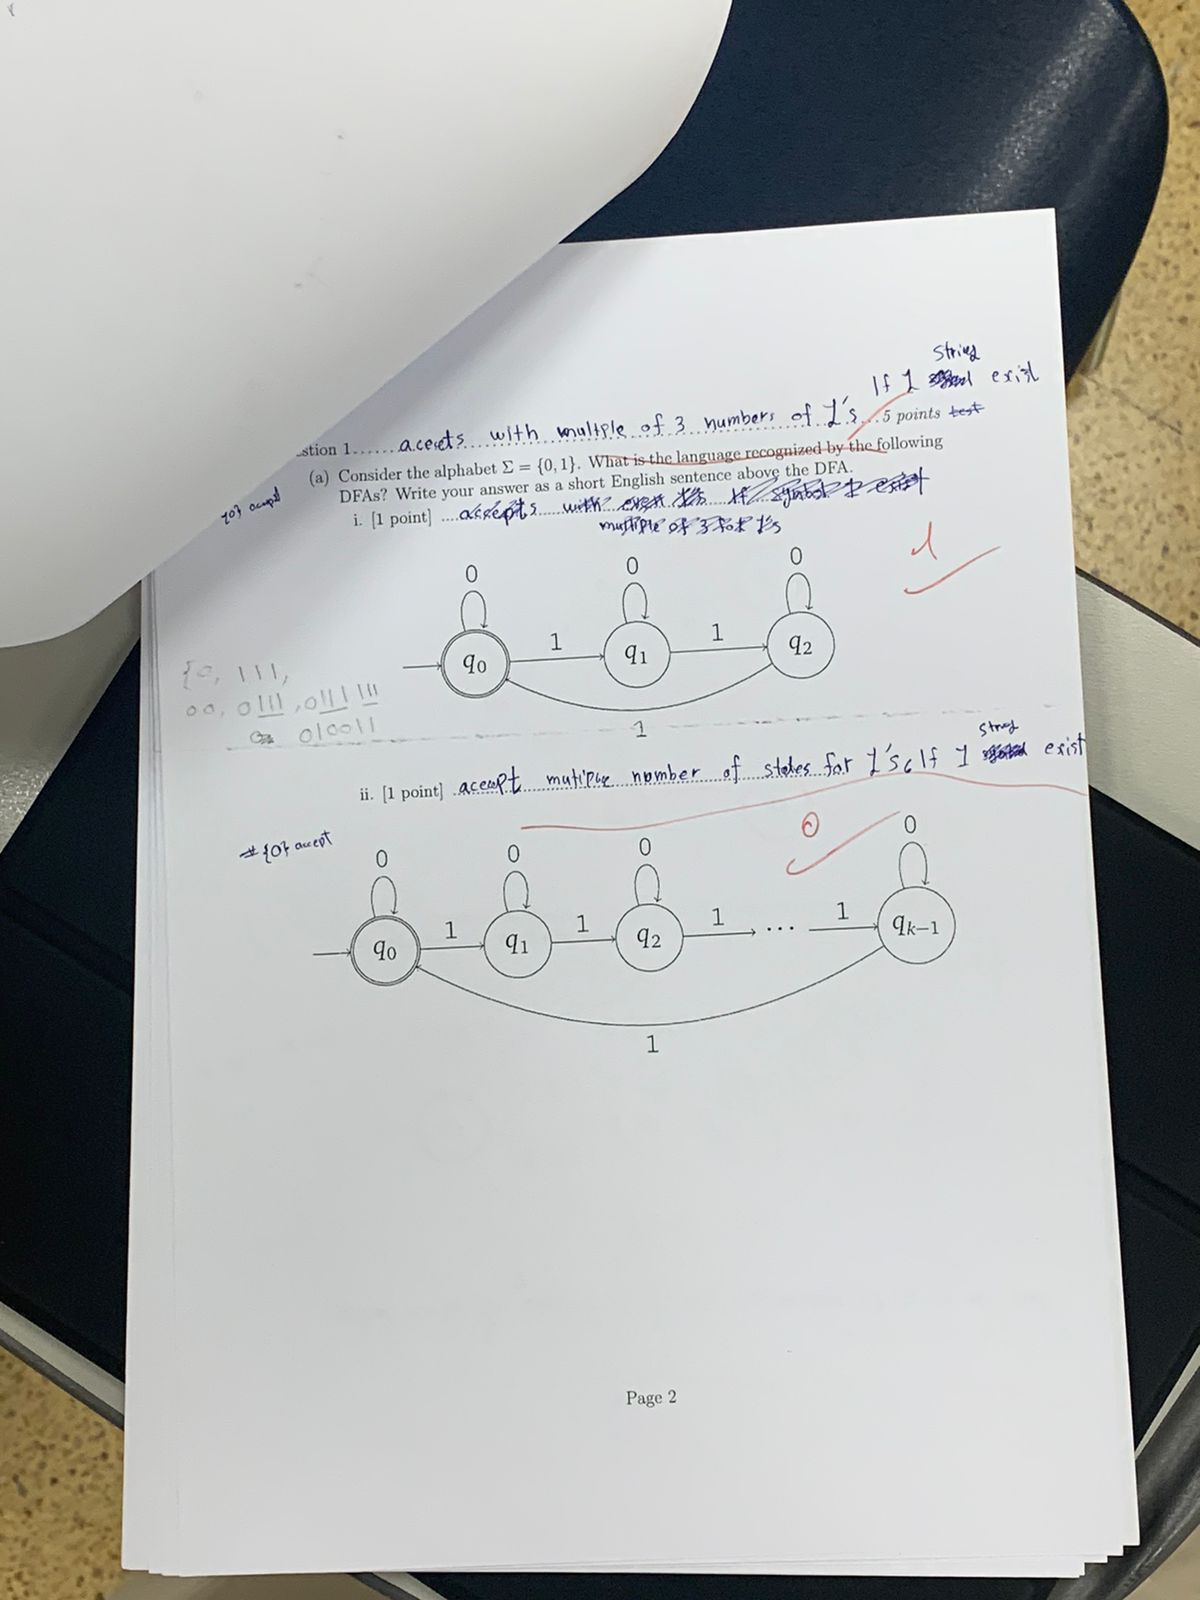 String
If 1 exist
accets with multiple of 3 numbers of 1's
stion 1. 5 points
(a) Consider the alphabet Σ = {0, 1}. What is the language recognized by the following
DFAs? Write your answer as a short English sentence above the DFA.
{0} accept
i. [1 point] accepts with
multiple of 3 for 1's
1
0 0 0
q0 1 q1 1 q2
1
{0, 111,
00, 0111, 0111 111
010011
String
ii. [1 point] accept mutiple nomber of states for 1's, If 1 exist
0
# {0} accept
0 0 0 0
q0 1 q1 1 q2 1 ... 1 qk−1
1
Page 2